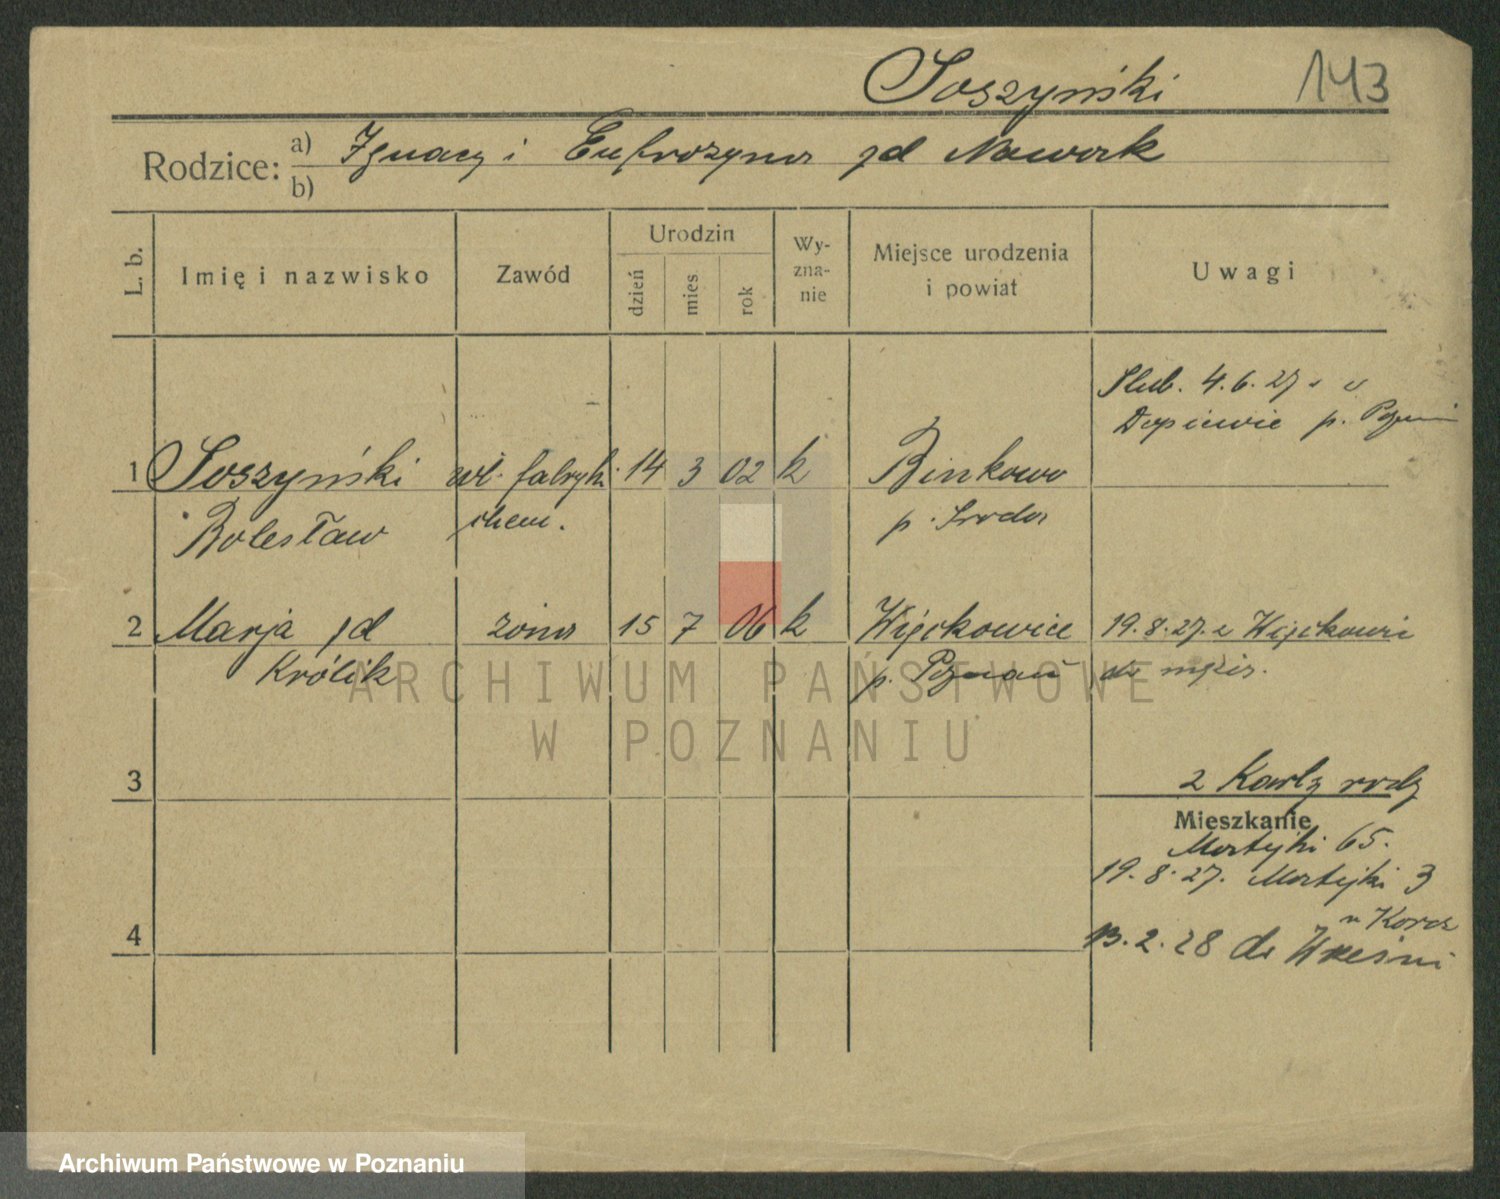 Soszyński 143
Rodzice: a) Ignacy i Eufrozyna zd Nowak
b)
L. b. Imię i nazwisko Zawód Urodzin dzień mies rok Wy-zna-nie Miejsce urodzenia i powiat Uwagi
Ślub. 4.6.27 w
Dopiewie p. Pozn
1 Soszyński wł. fabryki 14 3 02 k Binkowo
Bolesław chem. p. Środa
2 Marja zd żona 15 7 06 k Więckowice 19.8.27. z Więckowic
Królik p. Poznań do męża.
ARCHIWUM PAŃSTWOWE
W POZNANIU
3 2 Karty rodz
Mieszkanie
65.
19.8.27. 3
4
13.2.28 do Wrześni
Archiwum Państwowe w Poznaniu